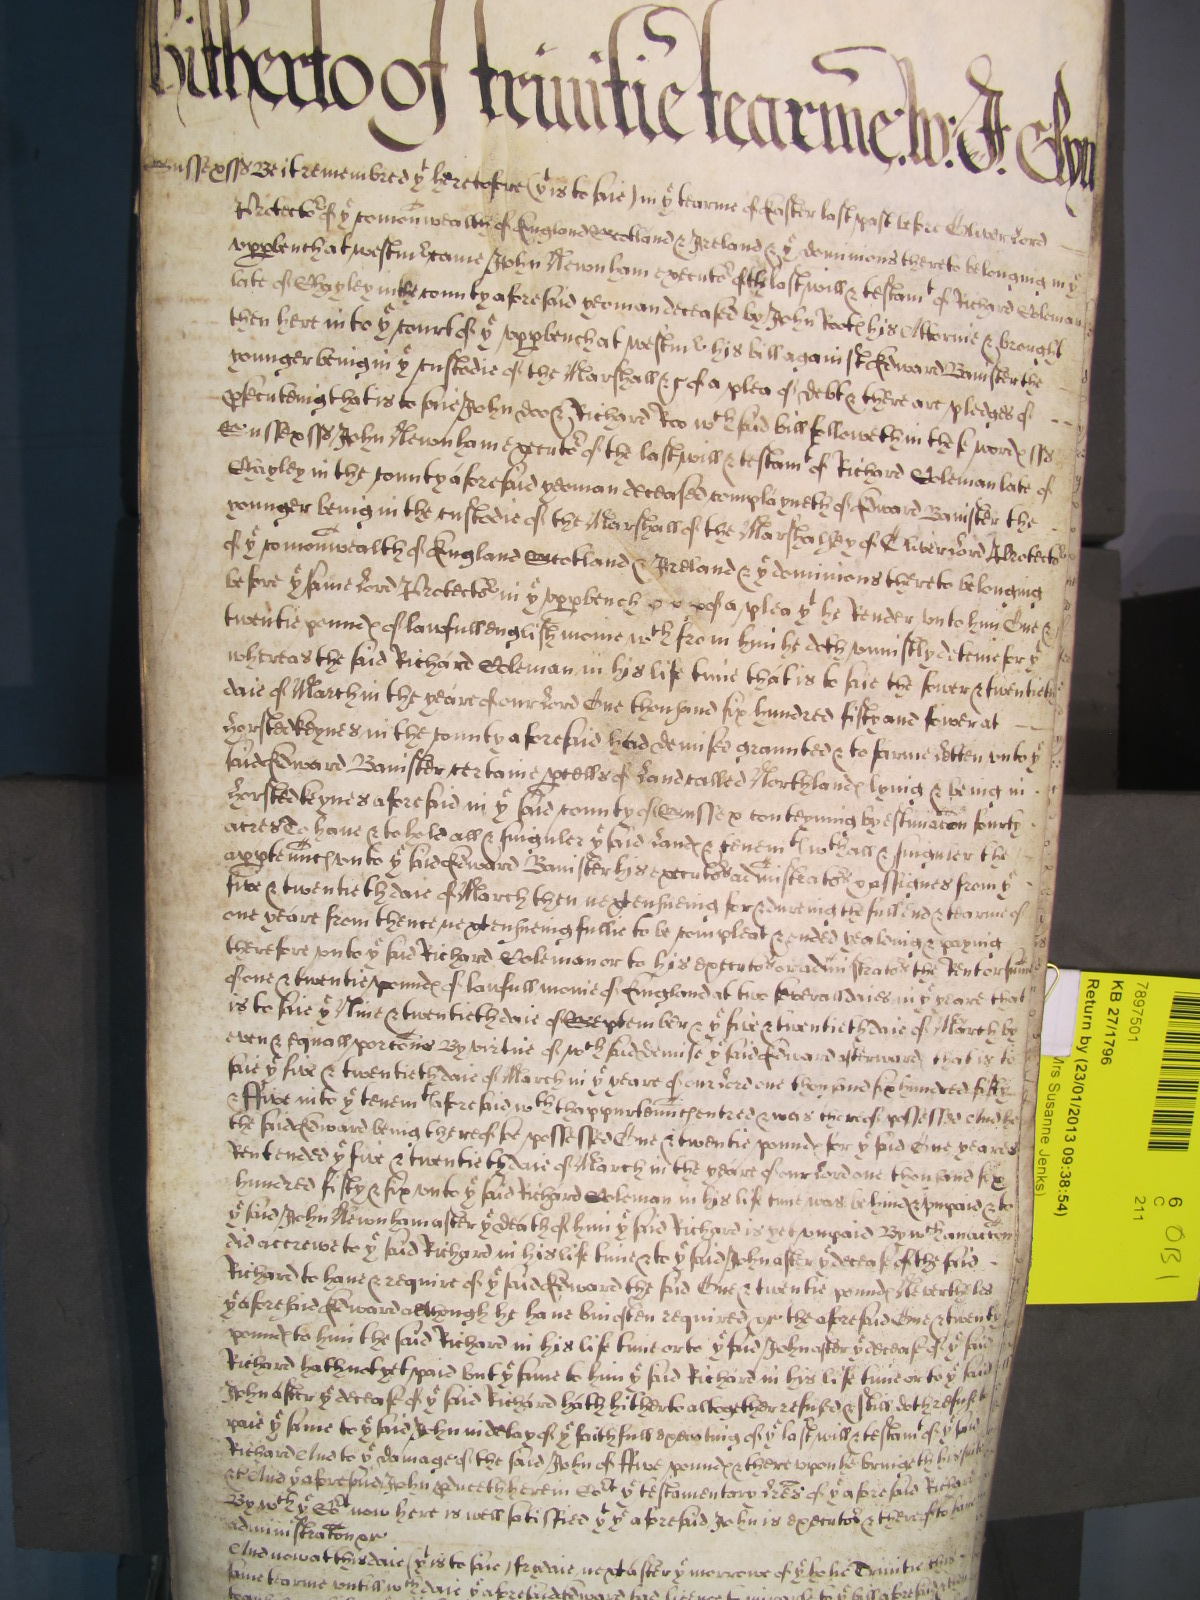 hitherto of trinitie tearme. W. J.
Sussex ss Be it remembred yt heretofore (yt is to saie) in ye tearme of Easter last past before Oliver Lord
Protector of ye comonwealth of England Scotland & Ireland & ye dominions thereto belonging in ye
upp bench at westmr came John Newnham executor of the last will & testamt of Richard Coleman
late of Chayley in the county aforesaid yeoman deceased by John Roote his Attornie & brought
then here into ye court of ye upp bench at westmr his bill against Edward Banister the
younger being in ye custodie of the Marshall &c of a plea of debt & there are pledges of
psecuteing that is to saie John doo & Richard Roo wch said bill followeth in these wordes ss
Sussex ss John Newnham executor of the last will & testamt of Richard Coleman late of
Chayley in the county aforesaid yeoman deceased complayneth of Edward Banister the
younger being in the custodie of the Marshall of the Marshalsey of Oliver Lord Protector
of ye comonwealth of England Scotland & Ireland & ye dominions thereto belonging
before ye same Lord Protector in ye upp bench of a plea yt he Render unto him One &
twentie poundes of lawfull english monie wch from him he doth uniustly deteine for yt
whereas the said Richard Coleman in his life time that is to saie the fower & twentieth
daie of March in the yeare of our Lord One thousand six hundred fifty and fower at
Horsted Keynes in the county aforesaid had demised graunted & to farme letten unto ye
said Edward Banister certaine pcells of Land called Northlandes lying & being in
Horsted Keynes aforesaid in ye said county of Sussex conteyning by estimacon fourty
acres To have & to hold all & singuler ye said Landes & tenemts with all & singuler the
apptennces unto ye said Edward Banister his executors administrators & assignes from ye
five & twentieth daie of March then next ensueing for & dureing the full end & tearme of
one yeare from thence next ensueing fullie to be compleat & ended yealding & paying
therefore unto ye said Richard Coleman or to his executors or administrators the Rent or summe
of one & twentie poundes of lawfull monie of England at two severall daies in ye yeare that
is to saie ye Nine & twentieth daie of September & ye five & twentieth daie of March by
even & equall porcons By virtue of wch said demise ye said Edward afterwards that is to
saie ye five & twentieth daie of March in ye yeare of our Lord one thousand six hundred fifty
& ffive into ye tenemts aforesaid wth thappurtennces entred & was thereof possessed And he
the said Edward being thereof so possessed One & twentie poundes for ye said One yeares
Rent ended ye five & twentieth daie of March in the yeare of our Lord one thousand six
hundred fifty & six unto ye said Richard Coleman in his life time was behind & unpaid & to
ye said John Newnham after ye death of him ye said Richard is yet unpaid By wch an accon
did accrewe to ye said Richard in his life time & to ye said John after ye decease of the said
Richard to have & require of ye said Edward the said One & twentie poundes Nevertheles
ye aforesaid Edward although he have bin often required &c the aforesaid One & twenty
poundes to him the said Richard in his life time or to ye said John after ye decease of ye said
Richard hath not yet paid but ye same to him ye said Richard in his life time or to ye said
John after ye decease of ye said Richard hath hitherto altogether refused & still doth refuse to
paie ye same to ye said John in delay of ye faithfull executing of ye last will & testamt of ye said
Richard And to ye damage of the said John of ffive poundes & thereupon he bringeth his suite
&c And ye aforesaid John pduceth here in Cort ye testamentory lres of ye aforesaid Richard
By wch ye Cort now here is well satisfied yt ye aforesaid John is executor & thereof to have
administracon &c
And now at this daie (yt is to saie) frydaie next after ye morrowe of ye holie Trinitie this
same tearme untill wch daie ye aforesaid Edward had licence to imparle to ye bill aforesaid
7897501
KB 27/1796
Return by (23/01/2013 09:38:54)
Mrs Susanne Jenks)
6
C
211